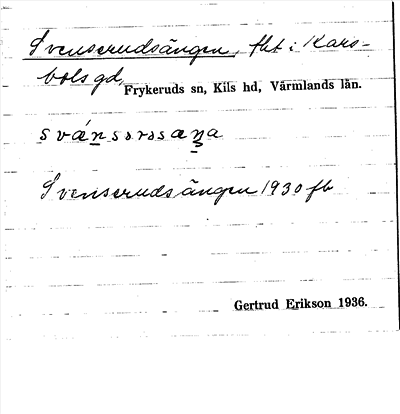 Svenserudsängen, fht i Kars-
bols gd,
Frykeruds sn, Kils hd, Värmlands län.
Svenserudsängen 1930 fb
Gertrud Erikson 1936.